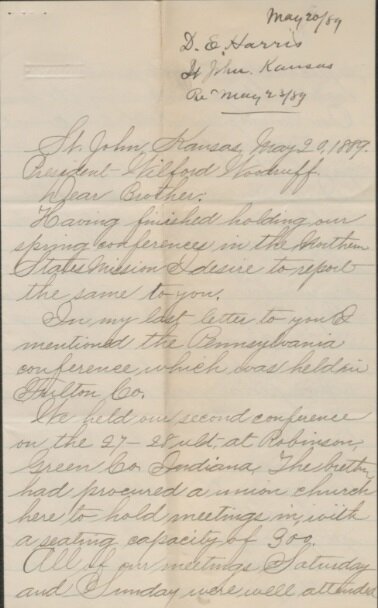 May 20/89
D. E. Harris
St John, Kansas
Rec May 23/89
St. John, Kansas, May 20, 1889.
President Wilford Woodruff
Dear Brother:
Having finished holding our
spring conferences in the Northern
States Mission I desire to report
the same to you.
In my last letter to you I
mentioned the Pennsylvania
conference which was held in
Fulton Co.
We held our second conference
on the 27-28 ult. at Robinson,
Green Co. Indiana, The brethren
had procured a union church
here to hold meetings in, with
a seating capacity of 300.
All of our meetings Saturday
and Sunday were well attended